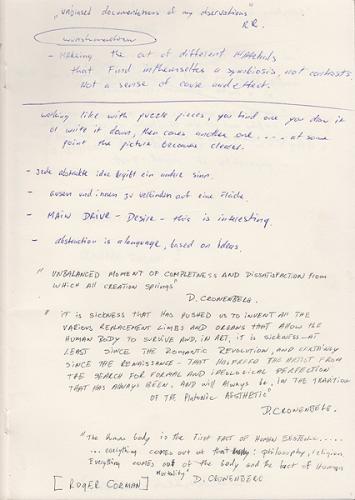 "unbiased documentations of my observations"
R.R.
- Making the art of different Materials
that find inthemselfes a symbiosis, not contrasts.
Not a sense of cause and effect.
working like with puzzle pieces, you find one you draw it
or write it down, then comes another one .... at some
point the picture becomes clearer.
- Jede abstrakte idee ergibt ein andere sinn.
- aussen und innen zu verbinden auf eine fläche.
- MAIN DRIVE - Desire - this is interesting.
- abstraction is a language, based on ideas.
" UNBALANCED MOMENT OF COMPLETNESS AND DISSATISFACTION from
which all creation springs"
D. CRONENBERG.
" IT is SICKNESS THAT HAS PUSHED US TO INVENT All THE
VARIOUS REPLACEMENT LIMBS AND ORGANS THAT ALLOW THE
HUMAN BODY TO SURVIVE AND, IN ART, IT is SICKNESS - AT
LEAST SINCE THE ROMANTIC REVOLUTION, AND CERTAINLY
SINCE THE RENAISSANCE - THAT HAS FREED THE ARTIST FROM
THE SEARCH FOR FORMAL AND IDEOLOGICAL PERFECTION
THAT HAS ALWAYS BEEN, AND will Always be, IN THE TRADITION
OF THE Platonic AESTHETIC"
D. CRONENBERG.
"The human body is the FIRST FACT OF HUMAN EXISTENCE.....
... everything comes out of that : philosophy, religion.
Everything COMES out of the body and the fact of Human
Mortality"
[ ROGER CORMAN ] D. CRONENBERG